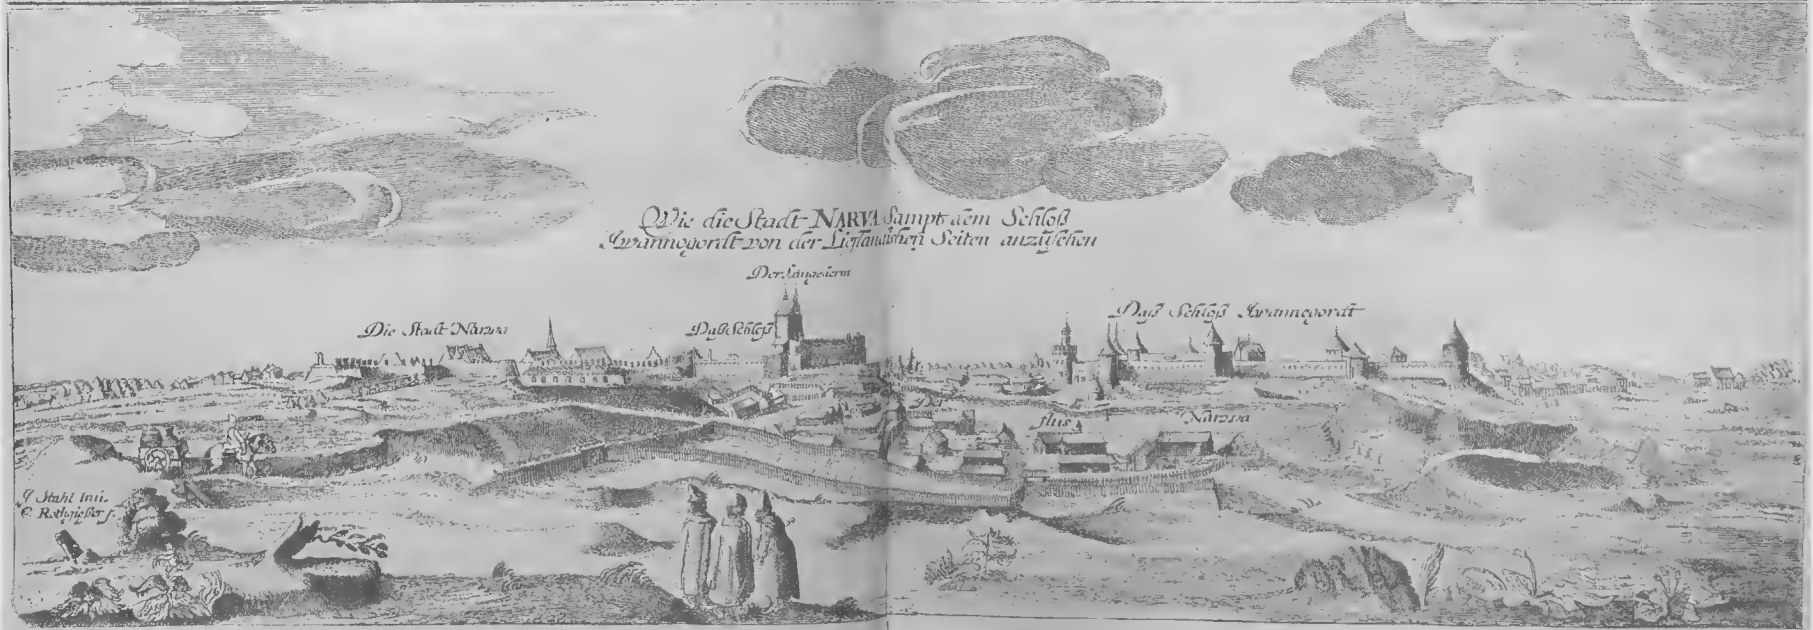 Wie die Stadt NARVA Sampt dem Schloß
Iwannogordt von der Lieflandischen Seiten anzusehen
Der Langederm
Die Stadt Narva
Daß Schloß
Daß Schloß Iwannogordt
Der
flus
Narva
J Stahl inū.
C. Rothgießer f.